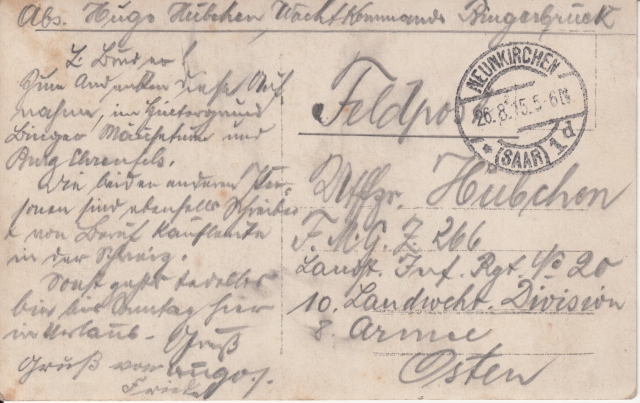 Abs. Hugo Hübchen, Wachtkommando Bingerbrück
L. Bruder!
Zum Andenken diese Auf-
nahme, im Hintergrund
Binger Mäuseturm und
Burg Ehrenfels.
Die beiden anderen Per-
sonen sind ebenfalls Schreiber
von Beruf Kaufleute
in der Schweiz.
Sonst geht's tadellos
bin bis Sonntag hier
in Urlaub. Gruß
Hugo.
Gruß von
Frieda
Feldpost
NEUNKIRCHEN
26.8.15.5-6N
* (SAAR) 1d
Uffz. Hübchen
F. M. G. Z. 266
Landst. Inf. Rgt. No 20
10. Landwehr Division
8. Armee
Osten